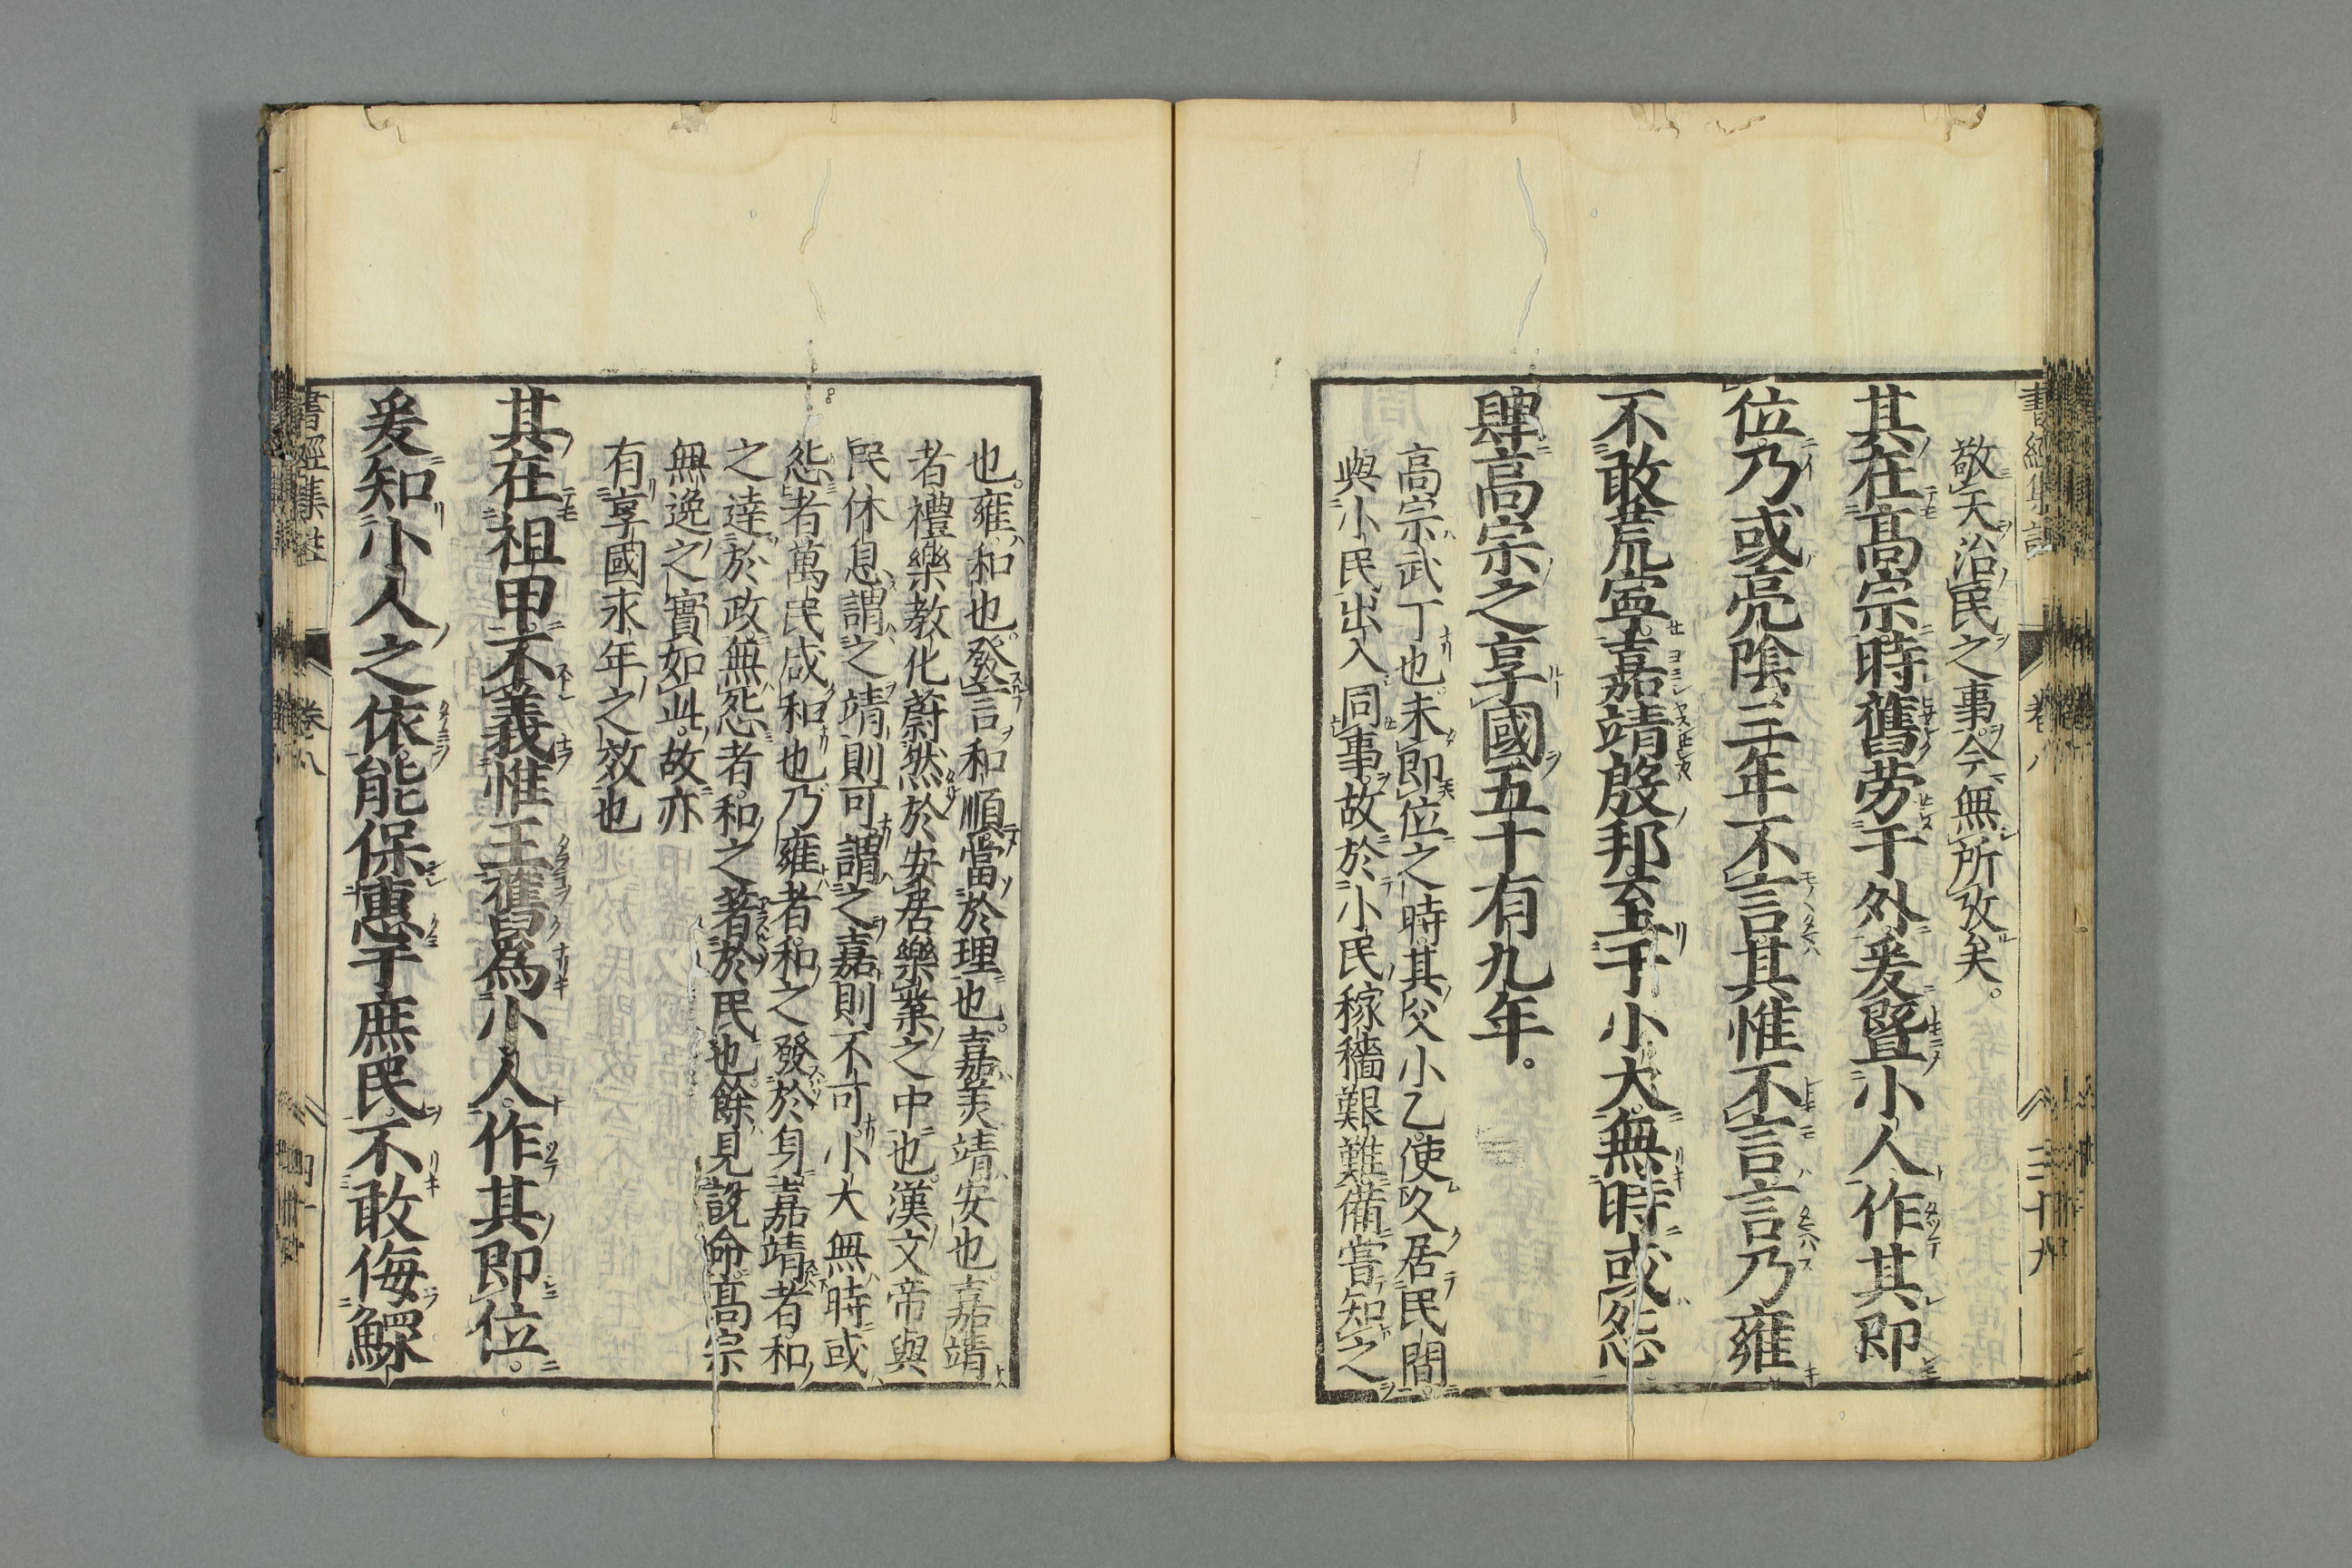 敬天治民之事今無所攷矣。
其在高宗時舊勞于外爰曁小人作其即
位乃或亮陰三年不言其惟不言言乃雍
不敢荒寧嘉靖殷邦至于小大無時或怨
肆高宗之享國五十有九年。
高宗武丁也未即位之時其父小乙使久居民間
與小民出入同事故於小民稼穡艱難備嘗知之
也。雍和也。發言和順當於理也。嘉美靖安也。嘉靖
者禮樂教化蔚然於安居樂業之中也漢文帝與
民休息謂之靖則可謂之嘉則不可小大無時或
怨者萬民咸和也乃雍者和之發於身嘉靖者和
之達於政無怨者和之著於民也餘見說命高宗
無逸之實如此。故亦
有享國永年之效也
其在祖甲。不義惟王舊爲小人作其即位。
爰知小人之依能保惠于庶民不敢侮鰥
書經集註
卷八
三十九